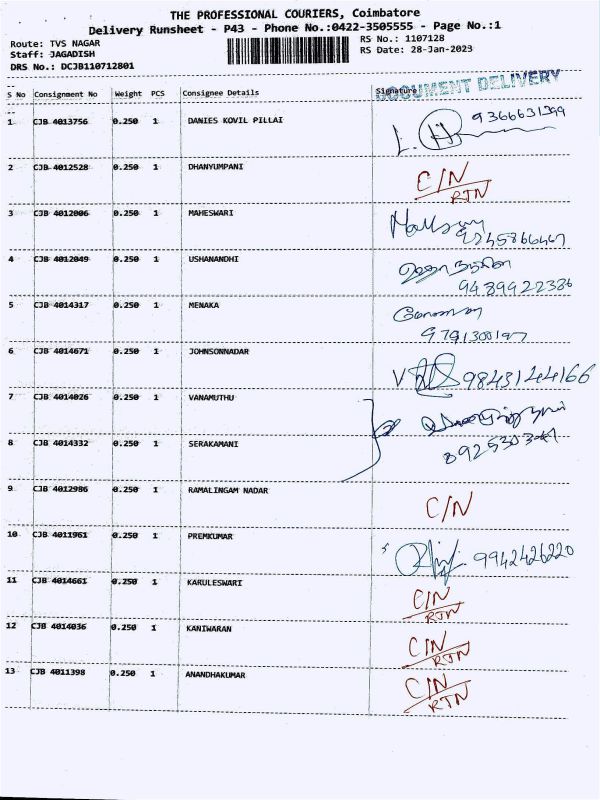 THE PROFESSIONAL COURIERS, Coimbatore
Delivery Runsheet - P43 - Phone No.:0422-3505555 - Page No.:1
Route: TVS NAGAR RS No.: 1107128
Staff: JAGADISH RS Date: 28-Jan-2023
DRS No.: DCJB110712801
DOCUMENT DELIVERY
S No Consignment No Weight PCS Consignee Details Signature
1 CJB 4013756 0.250 1 DANIES KOVIL PILLAI 9366631399
2 CJB 4012528 0.250 1 DHANYUMPANI C/N
RTN
3 CJB 4012006 0.250 1 MAHESWARI
9245866467
4 CJB 4012049 0.250 1 USHANANDHI உஷாநந்தினி
9489922386
5 CJB 4014317 0.250 1 MENAKA மேனகா
9791300197
6 CJB 4014671 0.250 1 JOHNSONNADAR 9843144166
7 CJB 4014026 0.250 1 VANAMUTHU
8 CJB 4014332 0.250 1 SERAKAMANI
9 CJB 4012986 0.250 1 RAMALINGAM NADAR C/N
10 CJB 4011961 0.250 1 PREMKUMAR 9942426220
11 CJB 4014661 0.250 1 KARULESWARI C/N
RTN
12 CJB 4014036 0.250 1 KANIWARAN C/N
RTN
13 CJB 4011398 0.250 1 ANANDHAKUMAR C/N
RTN